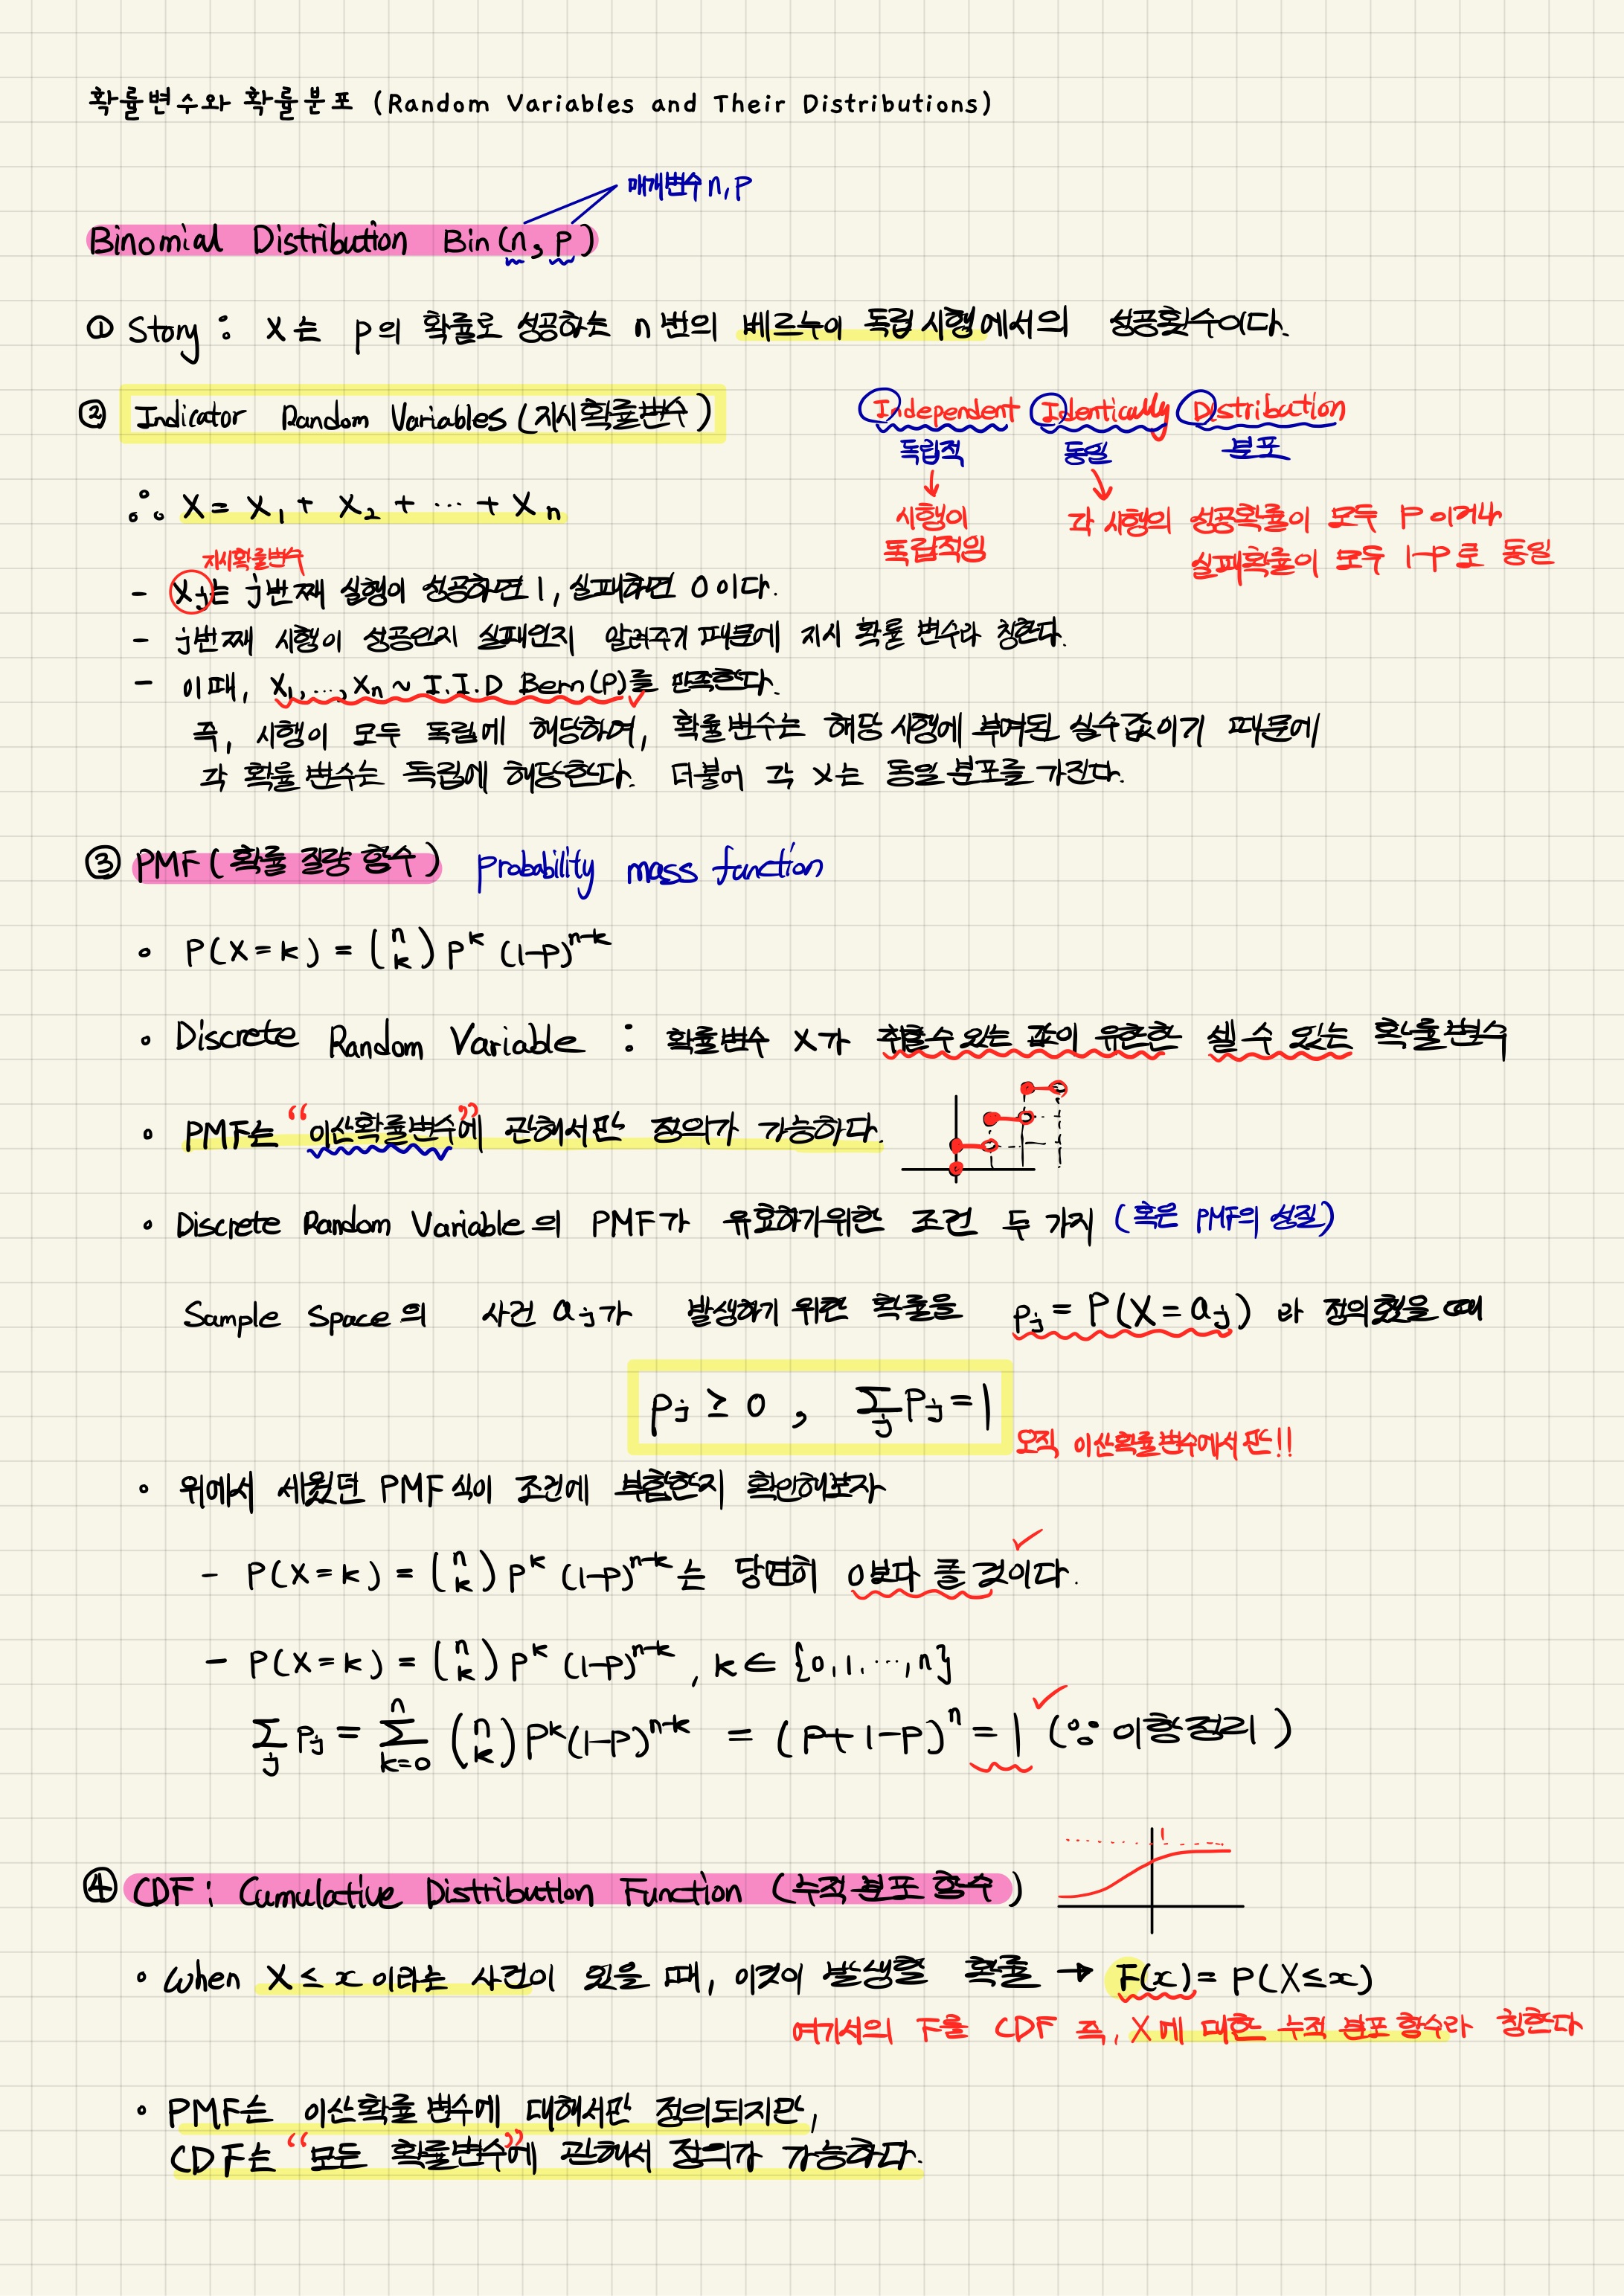 확률변수와 확률분포 (Random Variables and Their Distributions)
매개변수 n, p
Binomial Distribution Bin(n, p)
① Story : X는 p의 확률로 성공하는 n번의 베르누이 독립 시행에서의 성공횟수이다.
② Indicator Random Variables (지시확률변수)
Independent Identically Distribution
독립적 동일 분포
시행이
독립적임
각 시행의 성공확률이 모두 p이거나
실패확률이 모두 1-p로 동일
∴ X = X₁ + X₂ + ⋯ + Xₙ
지시확률변수
- Xⱼ는 j번째 실행이 성공하면 1, 실패하면 0이다.
- j번째 시행이 성공인지 실패인지 알려주기 때문에 지시 확률 변수라 칭한다.
- 이때, X₁, ..., Xₙ ~ I.I.D Bern(P)를 만족한다.
즉, 시행이 모두 독립에 해당하며, 확률변수는 해당 시행에 부여된 실수값이기 때문에
각 확률 변수는 독립에 해당한다. 더불어 각 X는 동일 분포를 가진다.
③ PMF (확률 질량 함수) probability mass function
∘ P(X=k) = (n k) p^k (1-p)^{n-k}
∘ Discrete Random Variable : 확률변수 X가 취할수 있는 값이 유한한 셀 수 있는 확률변수
∘ PMF는 “이산확률변수”에 관해서만 정의가 가능하다.
∘ Discrete Random Variable의 PMF가 유효하기위한 조건 두 가지 (혹은 PMF의 성질)
Sample Space의 사건 aⱼ가 발생하기 위한 확률을 pⱼ = P(X=aⱼ)라 정의했을 때
pⱼ ≥ 0 , Σⱼ pⱼ = 1
오직 이산확률변수에서만!!
∘ 위에서 세웠던 PMF식이 조건에 부합한지 확인해보자
- P(X=k) = (n k) p^k (1-p)^{n-k}는 당연히 0보다 클 것이다.
- P(X=k) = (n k) p^k (1-p)^{n-k}, k ∈ {0, 1, ⋯, n}
Σⱼ pⱼ = Σ_{k=0}^{n} (n k) p^k (1-p)^{n-k} = (p+1-p)^n = 1 (∵ 이항정리)
1
④ CDF : Cumulative Distribution Function (누적 분포 함수)
∘ When X ≤ x 이라는 사건이 있을 때, 이것이 발생할 확률 → F(x) = P(X≤x)
여기서의 F를 CDF 즉, X에 대한 누적 분포 함수라 칭한다
∘ PMF는 이산확률 변수에 대해서만 정의되지만,
CDF는 “모든 확률변수”에 관해서 정의가 가능하다.